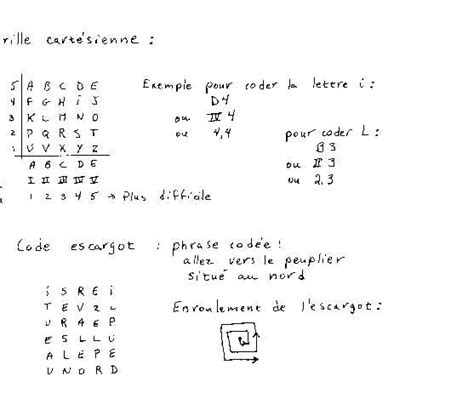 rille cartésienne :
5 A B C D E
4 F G H i J
3 K L M N O
2 P Q R S T
1 U V X Y Z
A B C D E
I II III IV V
1 2 3 4 5 → Plus difficile
Exemple pour coder la lettre i :
D4
ou IV 4
ou 4,4
pour coder L :
B3
ou II 3
ou 2,3
Code escargot : phrase codée :
allez vers le peuplier
situé au nord
i S R E i
T E V Z L
U R A E P
E S L L U
A L E P E
U N O R D
Enroulement de l'escargot :